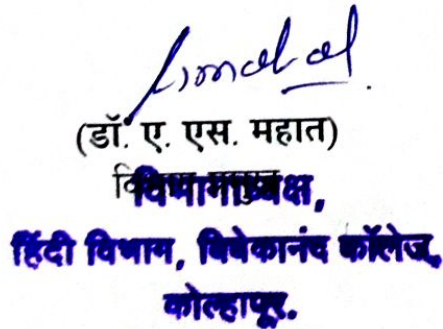 (डॉ. ए. एस. महात)
विभागाध्यक्ष,
हिंदी विभाग, विवेकानंद कॉलेज,
कोल्हापूर.